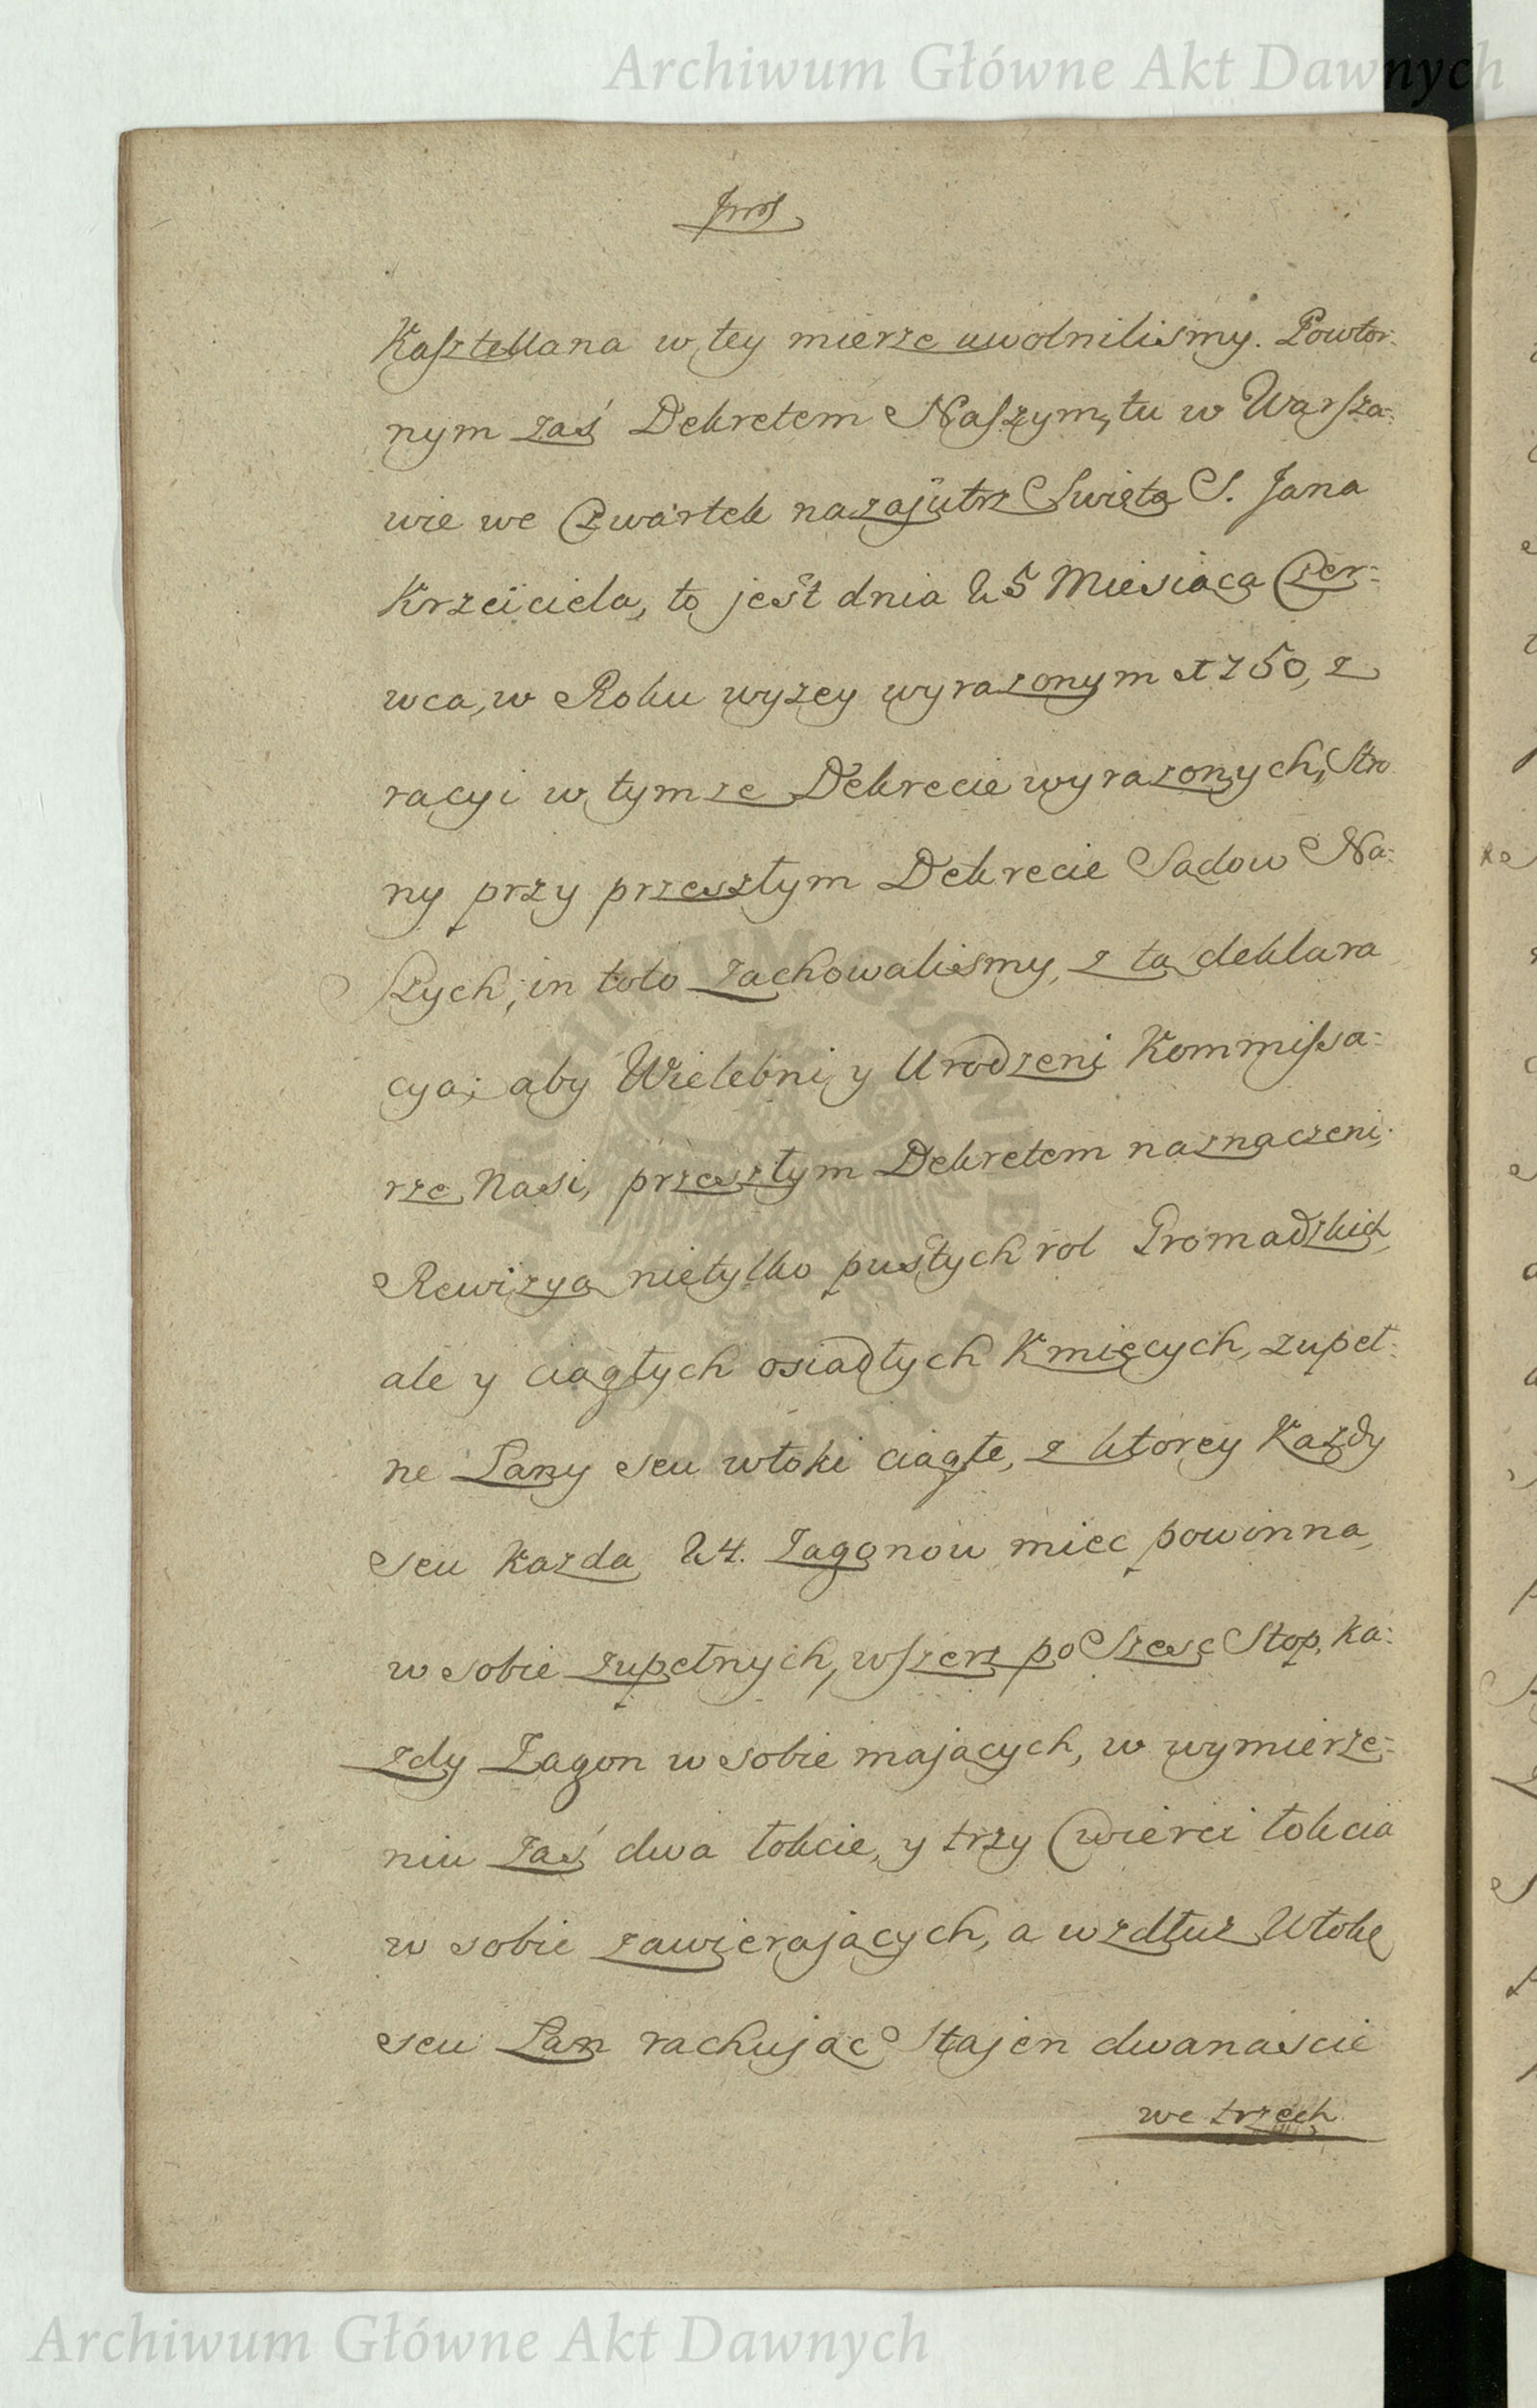 Archiwum Główne Akt Dawnych
Kasztellana w tey mierze uwolnilismy. Powtor:
nym zaś Dekretem Naszym, tu w Warsza:
wie we Czwartek nazajutrz Swięta S. Jana
Krzciciela, to jest dnia 25 Miesiąca Czer:
wca, w Roku wyzey wyrazonym 1750, z
racyi w tymze Dekrecie wyrazonych, Stro
ny przy przeszłym Dekrecie Sądow Na:
szych, in toto zachowalismy, z tą deklara
cyą; aby Wielebni y Urodzeni Kommissa:
rze Nasi, przeszłym Dekretem naznaczeni,
Rewizyą nietylko pustych rol Gromadzkich,
ale y ciągłych osiadłych Kmięcych, zupeł:
ne Łany seu włoki ciągłe, z ktorey Kazdy
seu Kazda 24. Zagonow miec powinna,
w sobie zupełnych, wszerz po Szesc Stop, ka:
zdy Zagon w sobie mających, w wymierze:
niu zaś dwa łokcie, y trzy Cwierci łokcia
w sobie zawierających, a wzdłuz Włokę
seu Łan rachując Stajen dwanascie
we trzech
ARCHIWUM GŁÓWNE AKT DAWNYCH
Archiwum Główne Akt Dawnych